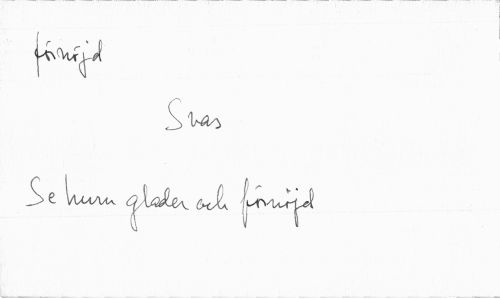 förnöjd
Svas
Se huru glader och förnöjd